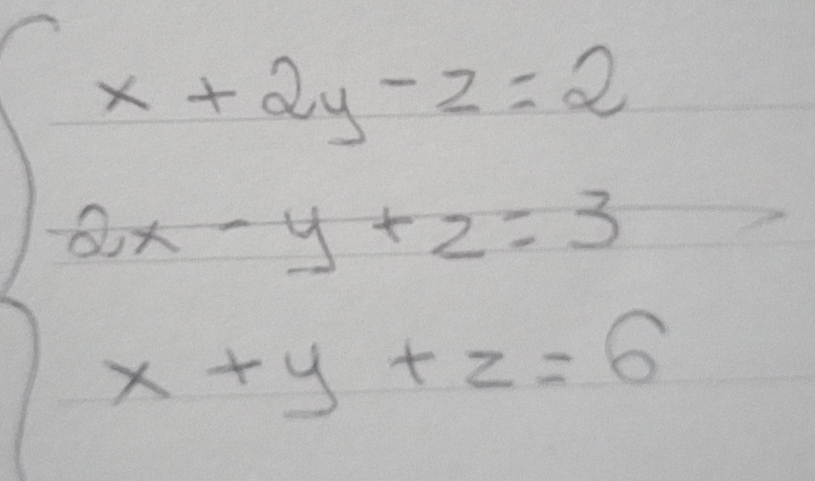 x + 2y - z = 2
2x - y + z = 3
x + y + z = 6